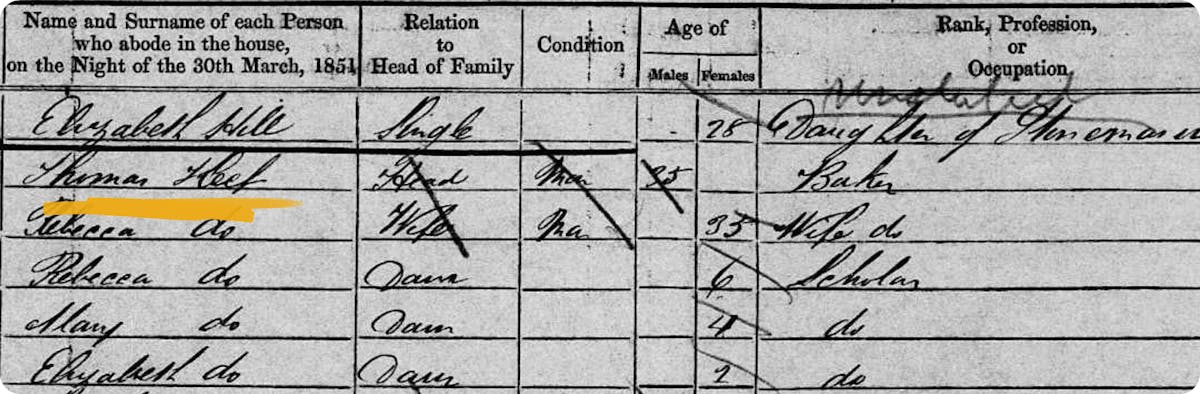 Name and Surname of each Person who abode in the house, on the Night of the 30th March, 1851
Relation to Head of Family
Condition
Age of
Males Females
Rank, Profession, or Occupation
Elizabeth Hill Single 28 Daughter of Stonemason
Thomas Keef Head Mar 35 Baker
Rebecca do Wife Mar 35 Wife do
Rebecca do Daur 6 Scholar
Mary do Daur 4 do
Elizabeth do Daur 2 do